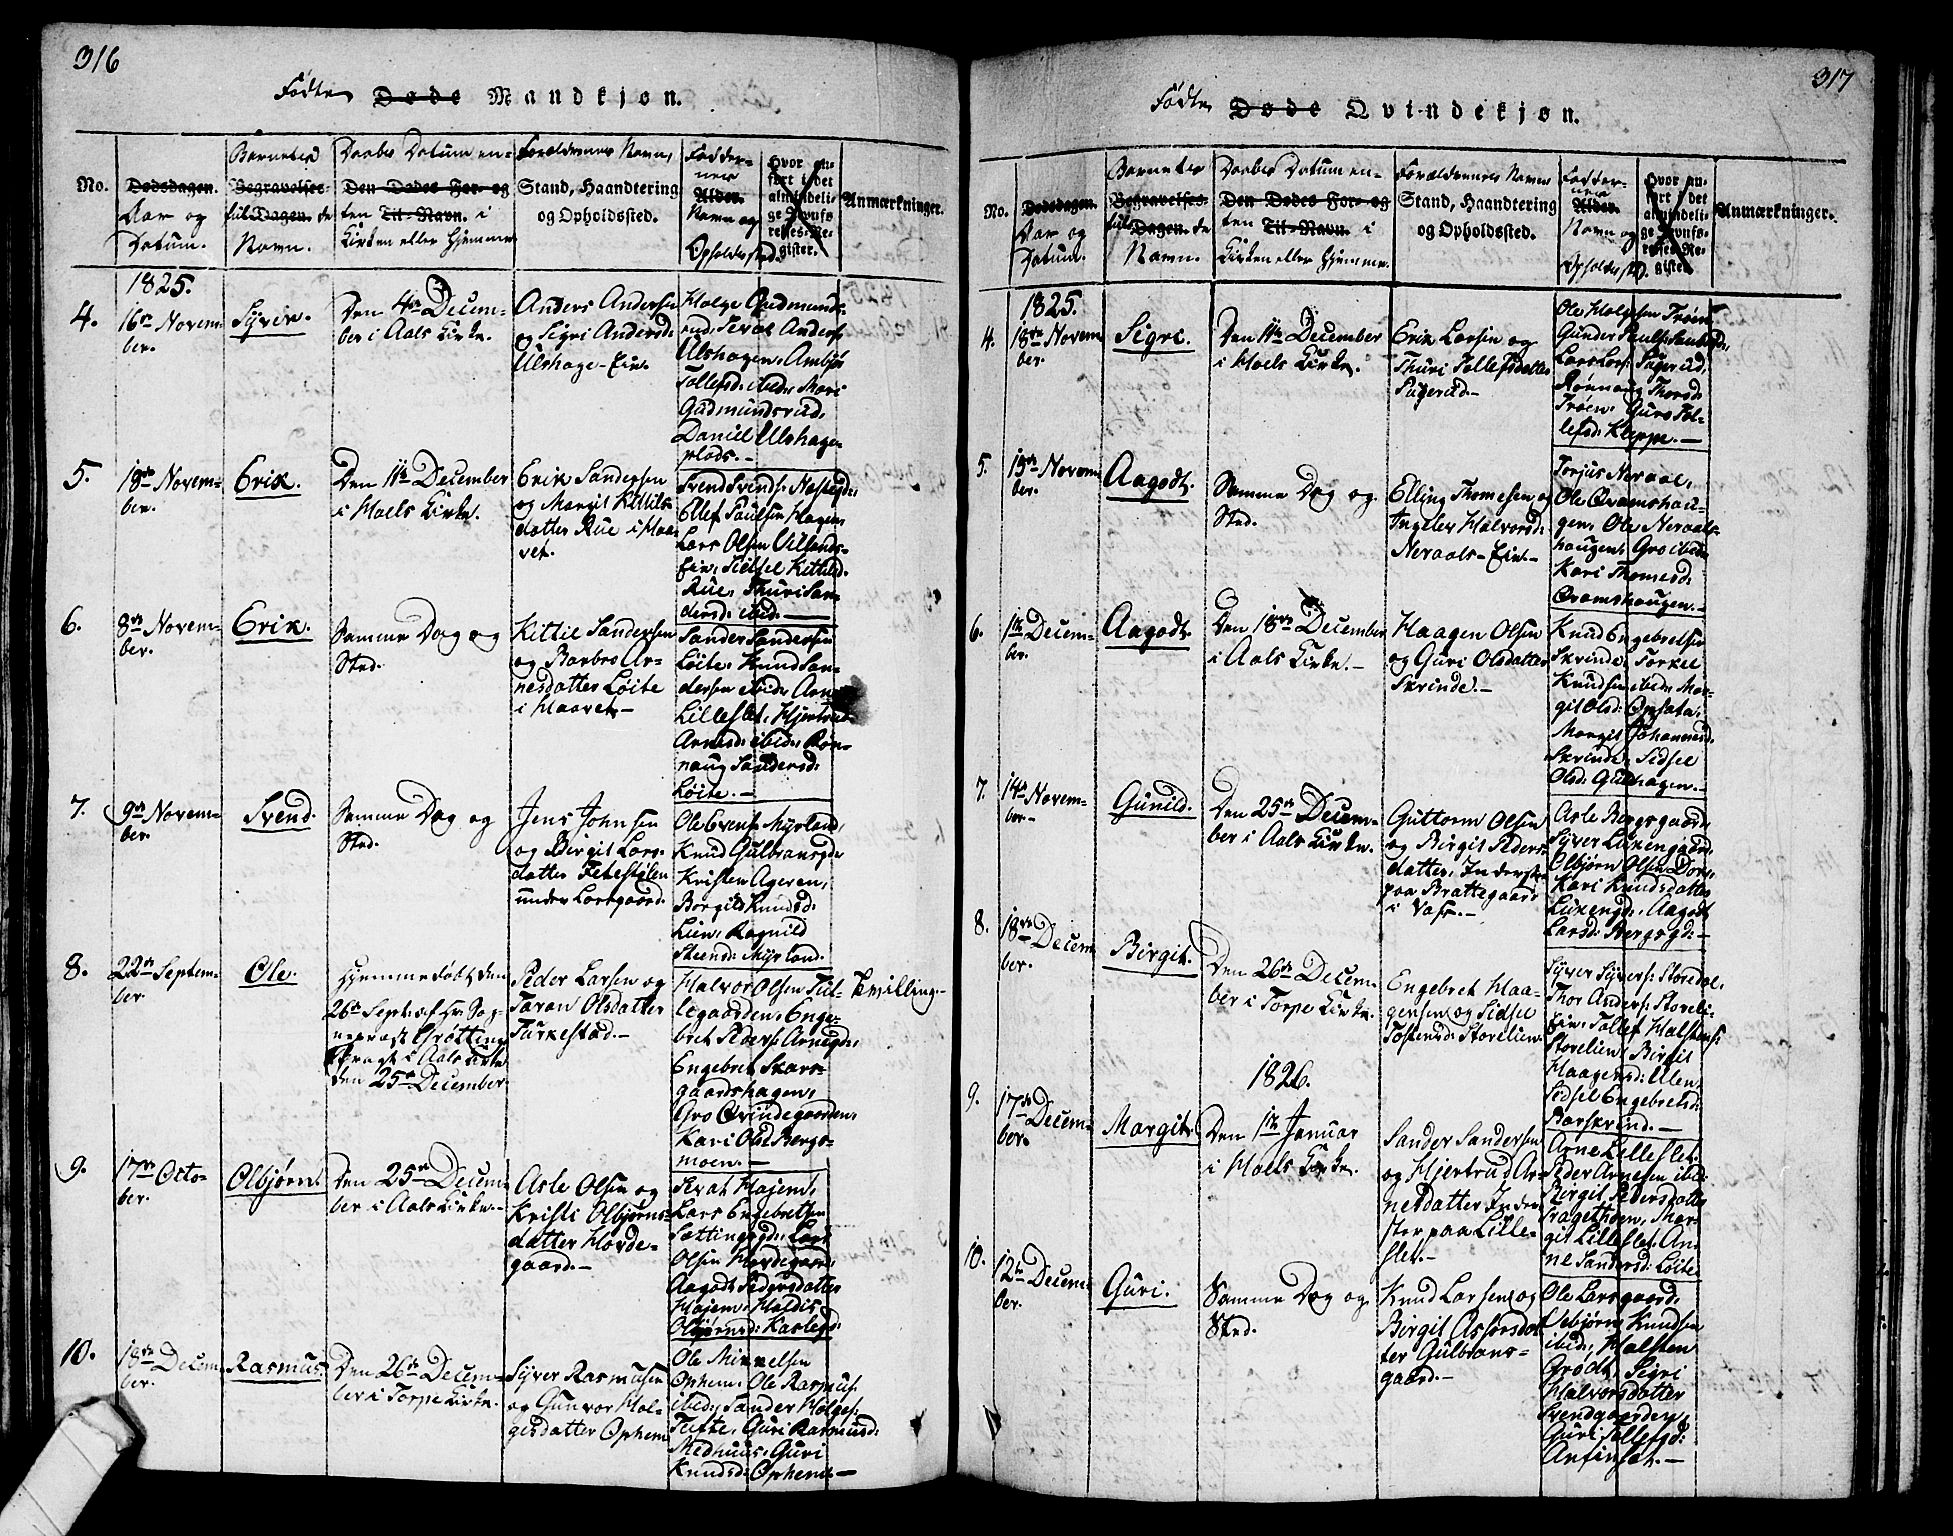 316
Fødte Døde Mandkjøn.
No.
Dødsdagen.
Aar og
Datum.
Barnets
Begravelses-
Dagen.
Navn.
Daabs Datum en-
Den Dødes For- og
ten Til-Navn. i
Kirken eller Hjemme
Forældrenes Navn,
Stand, Haandtering
og Opholdssted.
Fadder-
nes
Alder.
Navn og
Opholdssted.
Hvor an-
ført i det
almindeli-
ge Jevnfø-
relses-Re-
gister.
Anmærkninger.
1825.
4.
16de Novem-
ber.
Syver.
Den 4de Decem-
ber i Aals Kirke.
Anders Andersen
og Sigri Andersd:
Ulshage-Eie.
Gudmundsrud,
Daniel Ulshage-
plads.-
5.
18de Novem-
ber.
Erik.
Den 11te December
i Hols Kirke.
Erik Sandersen
og Margit Kittils-
datter Rue i Haa-
vet.
Svend Svends:
Ellef Paulsen Hagen,
Lars Olsen
Eie, Sidsel Kittilsd.
Rue, Thuri San-
dersd: ibid.
6.
8de Novem-
ber.
Erik.
Samme Dag og
Sted.
Kittil Sandersen
og Barbro Ar-
nesdatter Løite
i Haavet.-
Sander Sandersen
Løite, Knud San-
dersen ibid: Arne
Lilleslet, Hjertrud
Arnesd: ibid: Røn-
naug Sandersd:
Løite.-
7.
9de Novem-
ber.
Svend.
Samme Dag og
Sted.
Jens Johnsen
og Birgit Lars-
datter
under Larsgaard.
Ole Evens: Myrland,
Knud Gulbransgd:
Kristen Ageren,
Borgild Knudsd:
Lien, Ragnild
Steensd: Myrland.
8.
22de Septem-
ber
Ole.
Hjemmedøbt den
26de Sept: af Hr. Sog-
nepræst Grøtting
i Aals Kirke
den 25de December
Peder Larsen og
Taran Olsdatter
Turkestad.-
Halvor Olsen Tul-
legaarden, Enge-
bret
Engebret Skars-
gaardshagen,
Gro Qvindegaarden,
Kari Olsd: Bergs-
moen.-
Tvilling.
9.
17de Octo-
ber.
Olbjørn.
Den 25de Decem-
ber i Aals Kirke.-
Asle Olsen og
Kristi Olbjørns-
datter Horde-
gaard.-
Lars Engebretsen
Sættingsgd: Lars
Olsen Hordegaard,
Aagodt Pedersdatter
Olbjørnsd:
10.
18de Decem-
ber.
Rasmus
Den 26de Decem-
ber i Torpe Kirke.
Syver Rasmusen
og Gunvor Hol-
gesdatter Ophem
Ole Mikkelsen
Ophem, Ole Rasmus:
ibid: Sander Holges:
Tufte, Guri Rasmusd:
Medhuus, Guri
Knudsd: Ophem.-
317
Fødte Døde Qvindekjøn.
No.
Dødsdagen.
Aar og
Datum.
Barnets
Begravelses-
Dagen.
Navn.
Daabs Datum en-
Den Dødes For- og
ten Til-Navn. i
Kirken eller Hjemme.
Forældrenes Navn
Stand, Haandtering
og Opholdssted.
Fadder-
nes
Alder.
Navn og
Opholdssted.
Hvor an-
ført i det
almindeli-
ge Jevnfø-
relses-Re-
gister.
Anmærkninger.
1825.
4.
18de Novem-
ber.
Sigri.
Den 11te December
i Hols Kirke.
Erik Larsen og
Thuri Tollefsdatter
Ole Holgesen Trøen,
Rønnaug Thorsd:
Trøen, Guro Tol-
lefsd: Kleppe.-
5.
15de Novem-
ber.
Aagodt.
Samme Dag og
Sted.
Elling Thomesen og
Ingeler Halvorsd:
Neraals-Eie.-
Torjus Neraal,
Ole Qvamshau-
gen, Ole Neraals-
haugen, Gro ibid:
Kari Thomesd:
Qvamshaugen.-
6.
1te Decem-
ber.
Aagodt.
Den 18de December
i Aals Kirke.-
Haagen Olsen
og Guri Olsdatter
Skrinde.-
Knud Engebretsen
Skrinde, Torkel
Knudsen ibid: Mar-
git Olsd:
Margit Johannesd:
Skrinde, Sidsel
Olsd: Gulhagen.-
7.
14de Novem-
ber.
Gunild.
Den 25de Decem-
ber i Aals Kirke.
Guttorm Olsen
og Birgit Peders-
datter, Inderster
paa Brattegaard
i Vats.-
Asle Bergsgaard,
Syver Lixengaard,
Olbjørn Olsen Dor,
Kari Knudsdatter
Lixengd: Aagodt
Larsd: Bergsgd:-
8.
18de Decem-
ber.
Birgit.
Den 26de Decem-
ber i Torpe Kirke.
Engebret Haa-
gensen og Sidsel
Tostensd: Storelien.
Syver Syvers: Storedal,
Thor Anders: Storeli-
Eie, Tollef Halstens:
Storelien, Birgit
Haagensd: Ulen,
Sidsel Engebretsd:
9.
17de Decem-
ber.
Margit.
1826.
Den 1te Januar
i Hols Kirke.
Sander Sandersen
og Hjertrud Ar-
nesdatter Inder-
ster paa Lille-
slet.-
Arne Lilleslet,
Peder Arnesen ibid:
Birgit Pedersdatter
Fragethoen, Mar-
git Lilleslet, An-
ne Sandersd: Løite.
10.
12te Decem-
ber.
Guri.
Samme Dag og
Sted.
Knud Larsen og
Birgit Assorsdat-
ter Gulbrans-
gaard.-
Ole Larsgaard,
Asbjørn Knudsen
ibid:, Halsten
Grodt, Sigri
Halvorsdatter
Svendgaarden,
Guri Tollefsd:
Anfinset.-